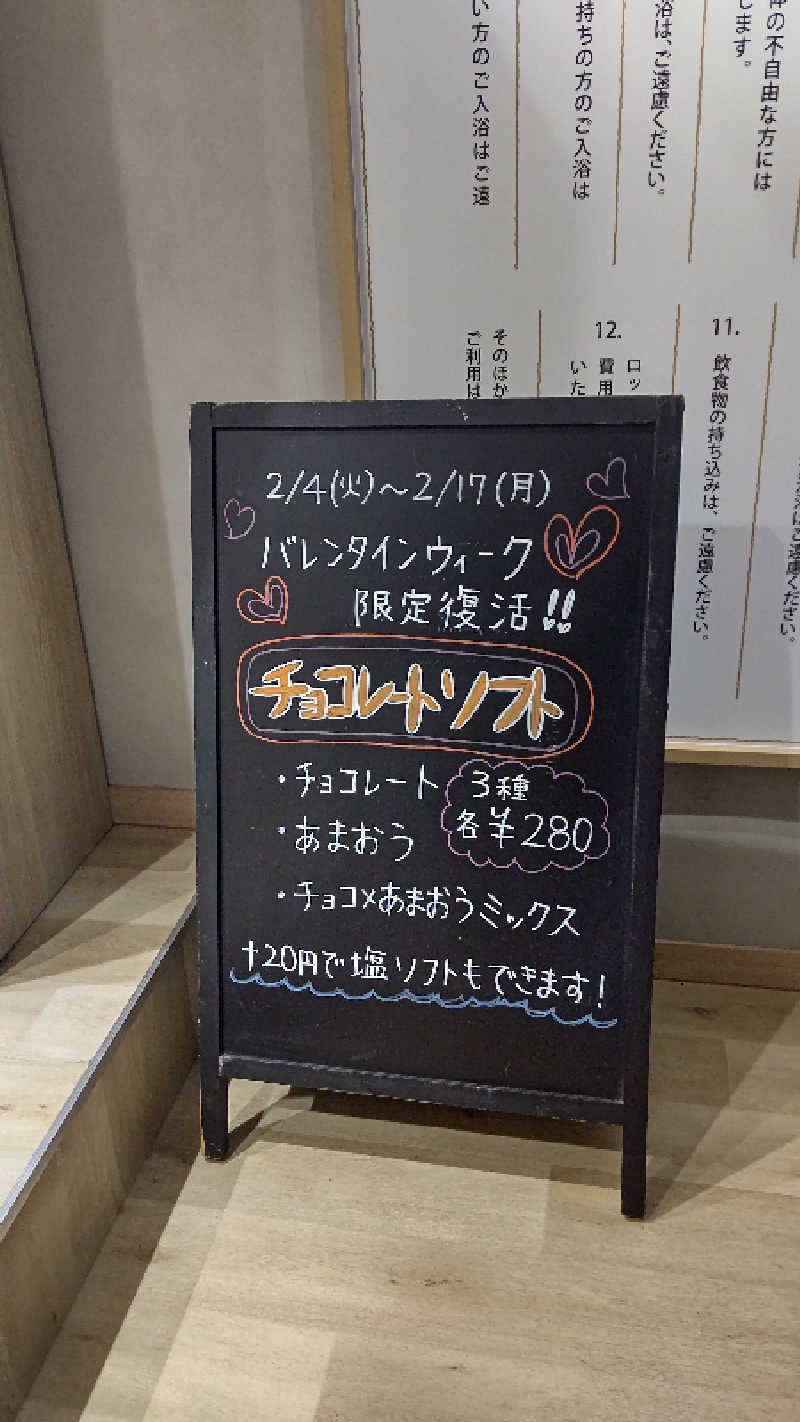 2/4(火)～2/17(月)
バレンタインウィーク
限定復活!!
チョコレートソフト
・チョコレート
・あまおう
・チョコ×あまおうミックス
3種
各¥280
+20円で塩ソフトもできます!
の不自由な方には
します。
浴は、ご遠慮ください。
持ちの方のご入浴は
い方のご入浴はご遠
11.
飲食物の持ち込みは、ご遠慮ください。
12.
ロッ
費用
いた
そのほか
ご利用は